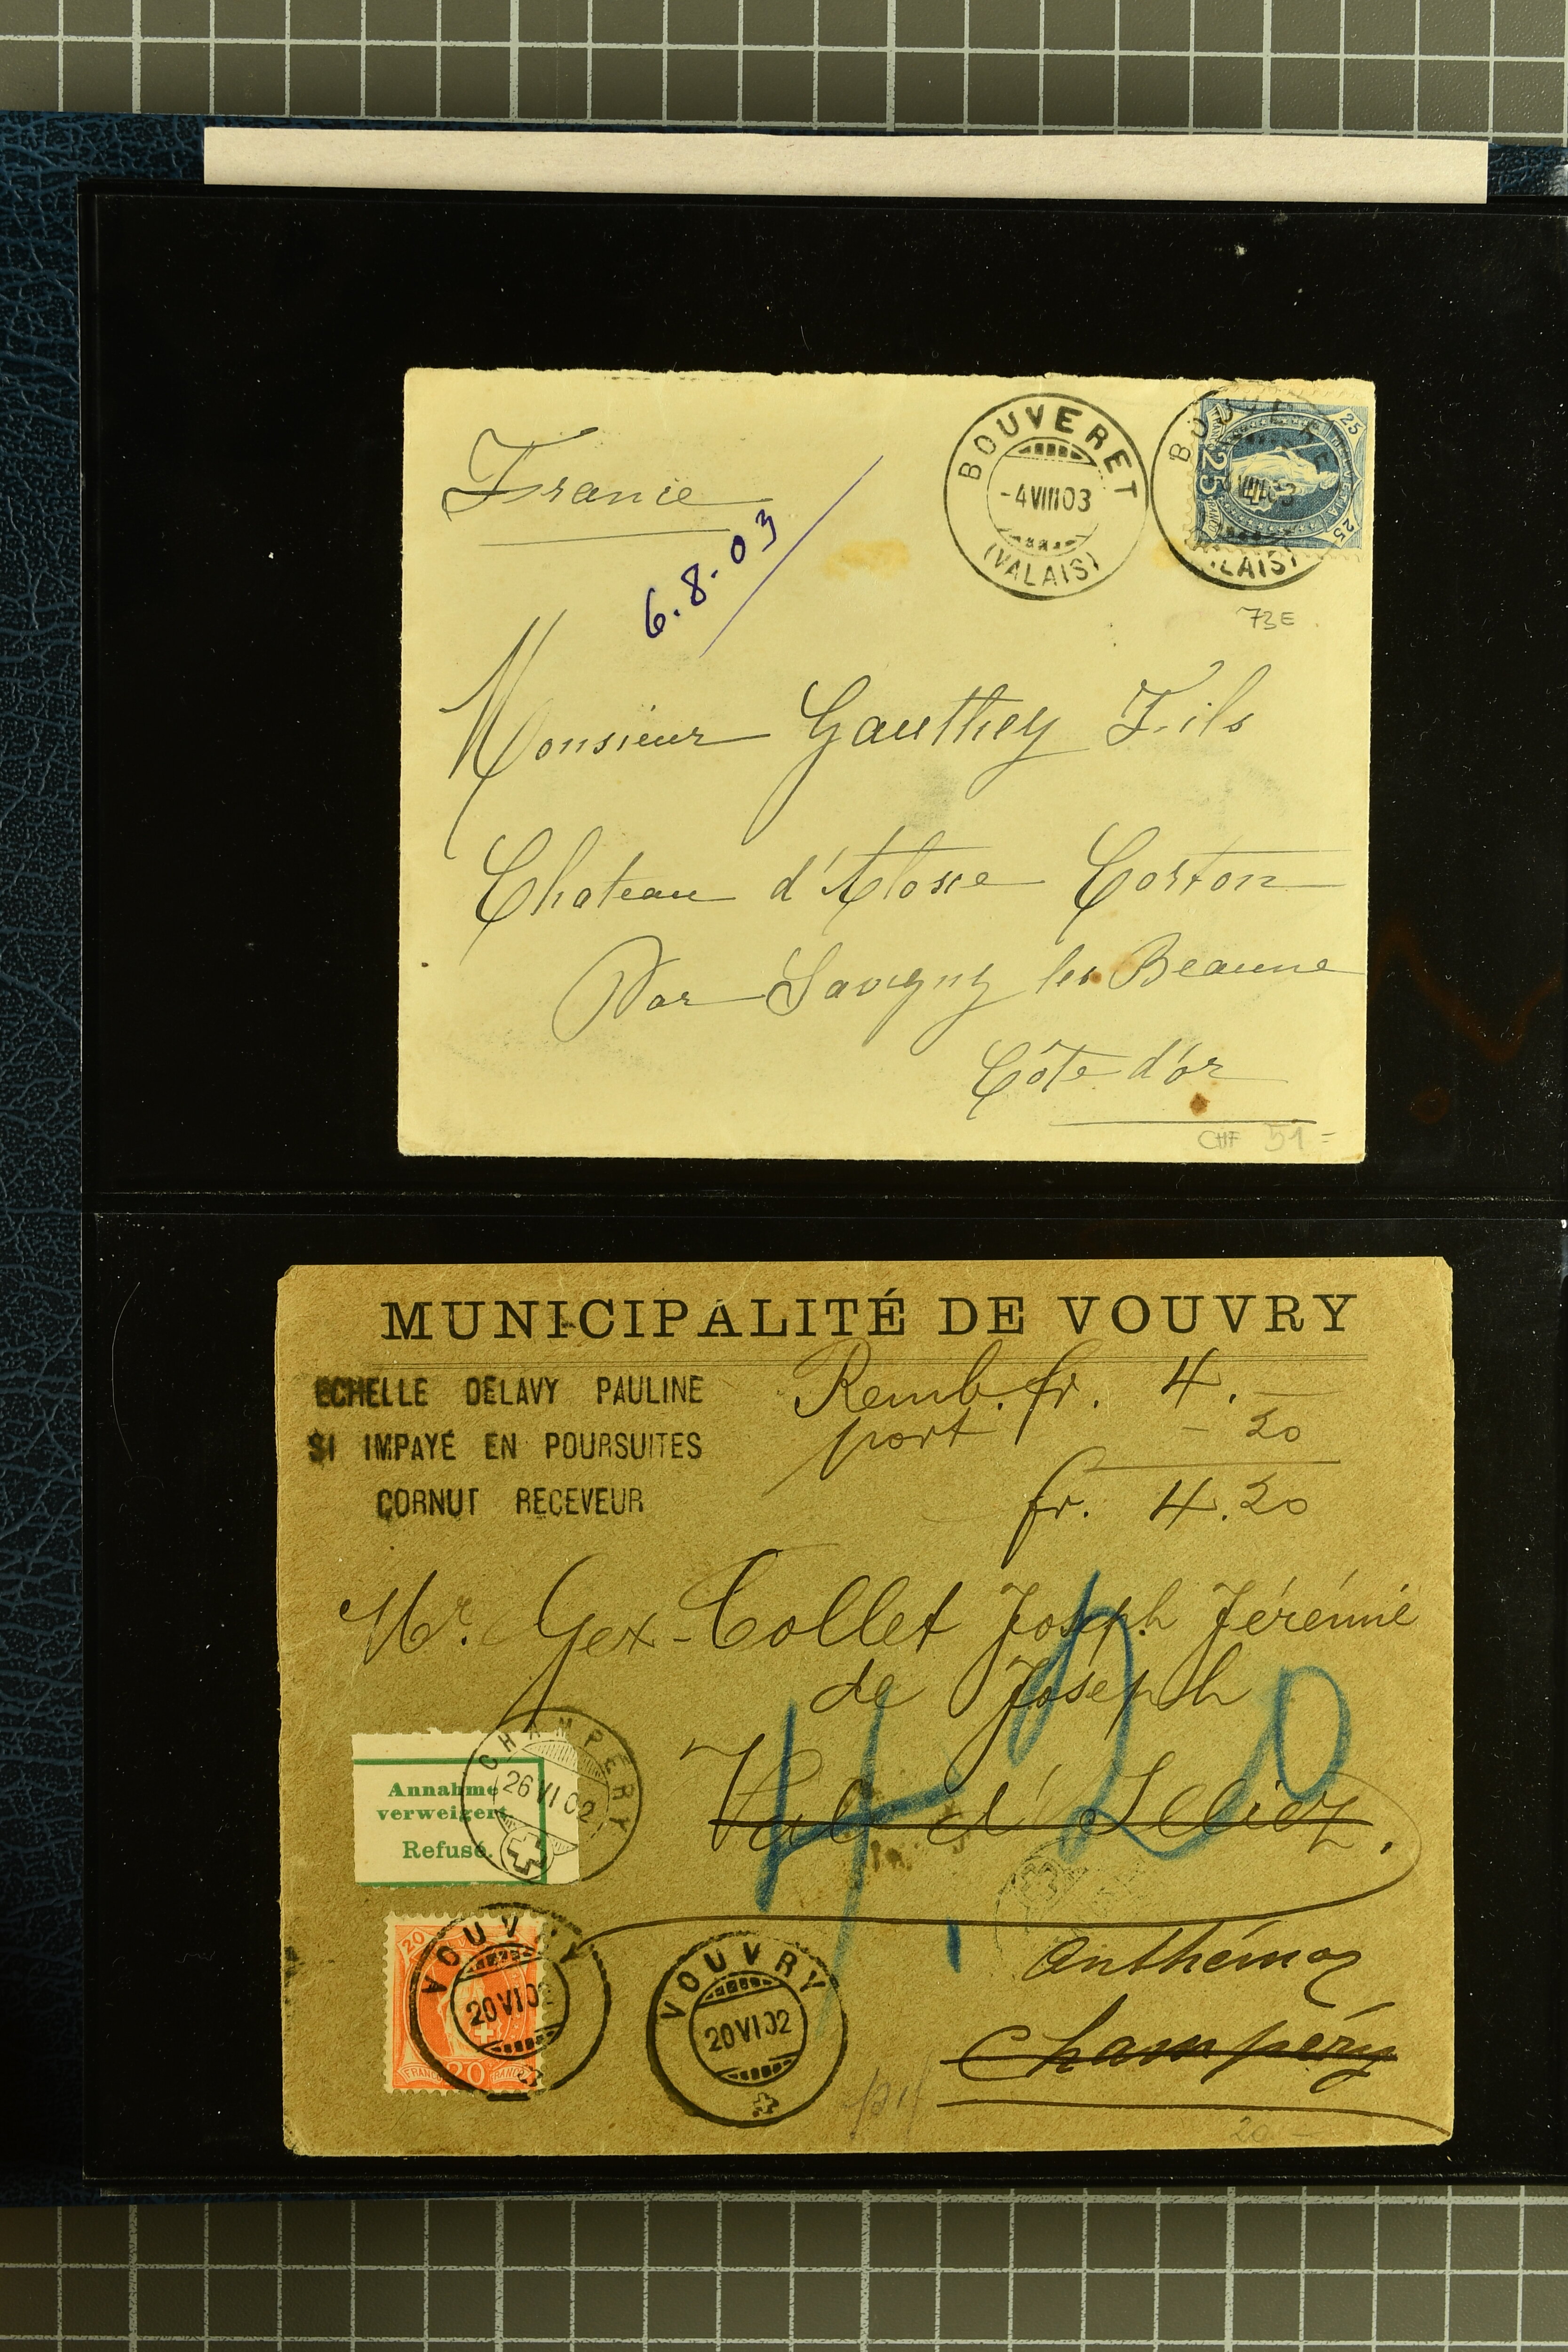 France
6.8.03
BOUVERET
-4VIII03
(VALAIS)
25
25
25
73E
Monsieur Gauthey Fils
Chateau d'Aloxe Corton
Par Savigny les Beaune
Côte d'or
CHF 51=
MUNICIPALITÉ DE VOUVRY
ECHELLE DELAVY PAULINE
SI IMPAYÉ EN POURSUITES
CORNUT RECEVEUR
Remb. fr. 4.—
port - 20
fr. 4.20
Mr. Gex-Collet Joseph Jérémie
de Joseph
Val d'Illiez.
4.20
CHAMPERY
26 VI 02
Annahme
verweigert
Refusé.
Anthémoz
Champéry
VOUVRY
20 VI 02
20
FRANCO 20 FRANCO
VOUVRY
20 VI 02
20 -